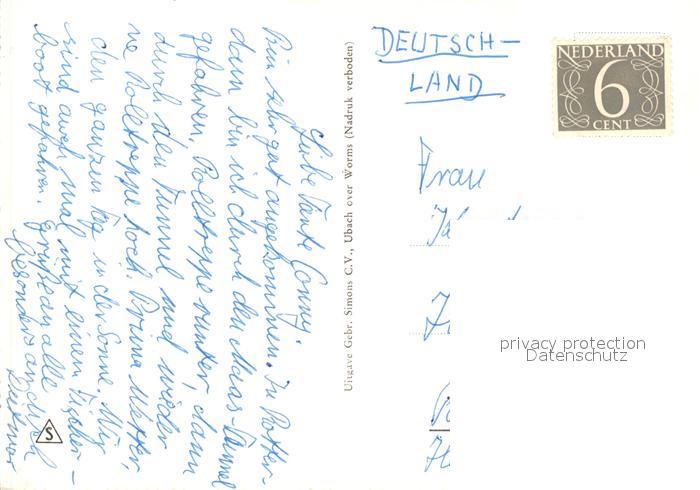 Liebe Tante Conny!
Bin sehr gut angekommen. In Rotter-
dam bin ich durch den Maas-Tunnel
gefahren. Rolltreppe runter, dann
durch den Tunnel und wieder
ne Rolltreppe hoch. Prima Wetter,
den ganzen Tag in der Sonne. Wir
sind auch mal mit einem Fischer-
boot gefahren. Grüße an alle
besonders auch
Dietmar
Uitgave Gebr. Simons C.V., Ubach over Worms (Nadruk verboden)
S
DEUTSCH-
LAND
NEDERLAND
6
CENT
Frau
privacy protection
Datenschutz